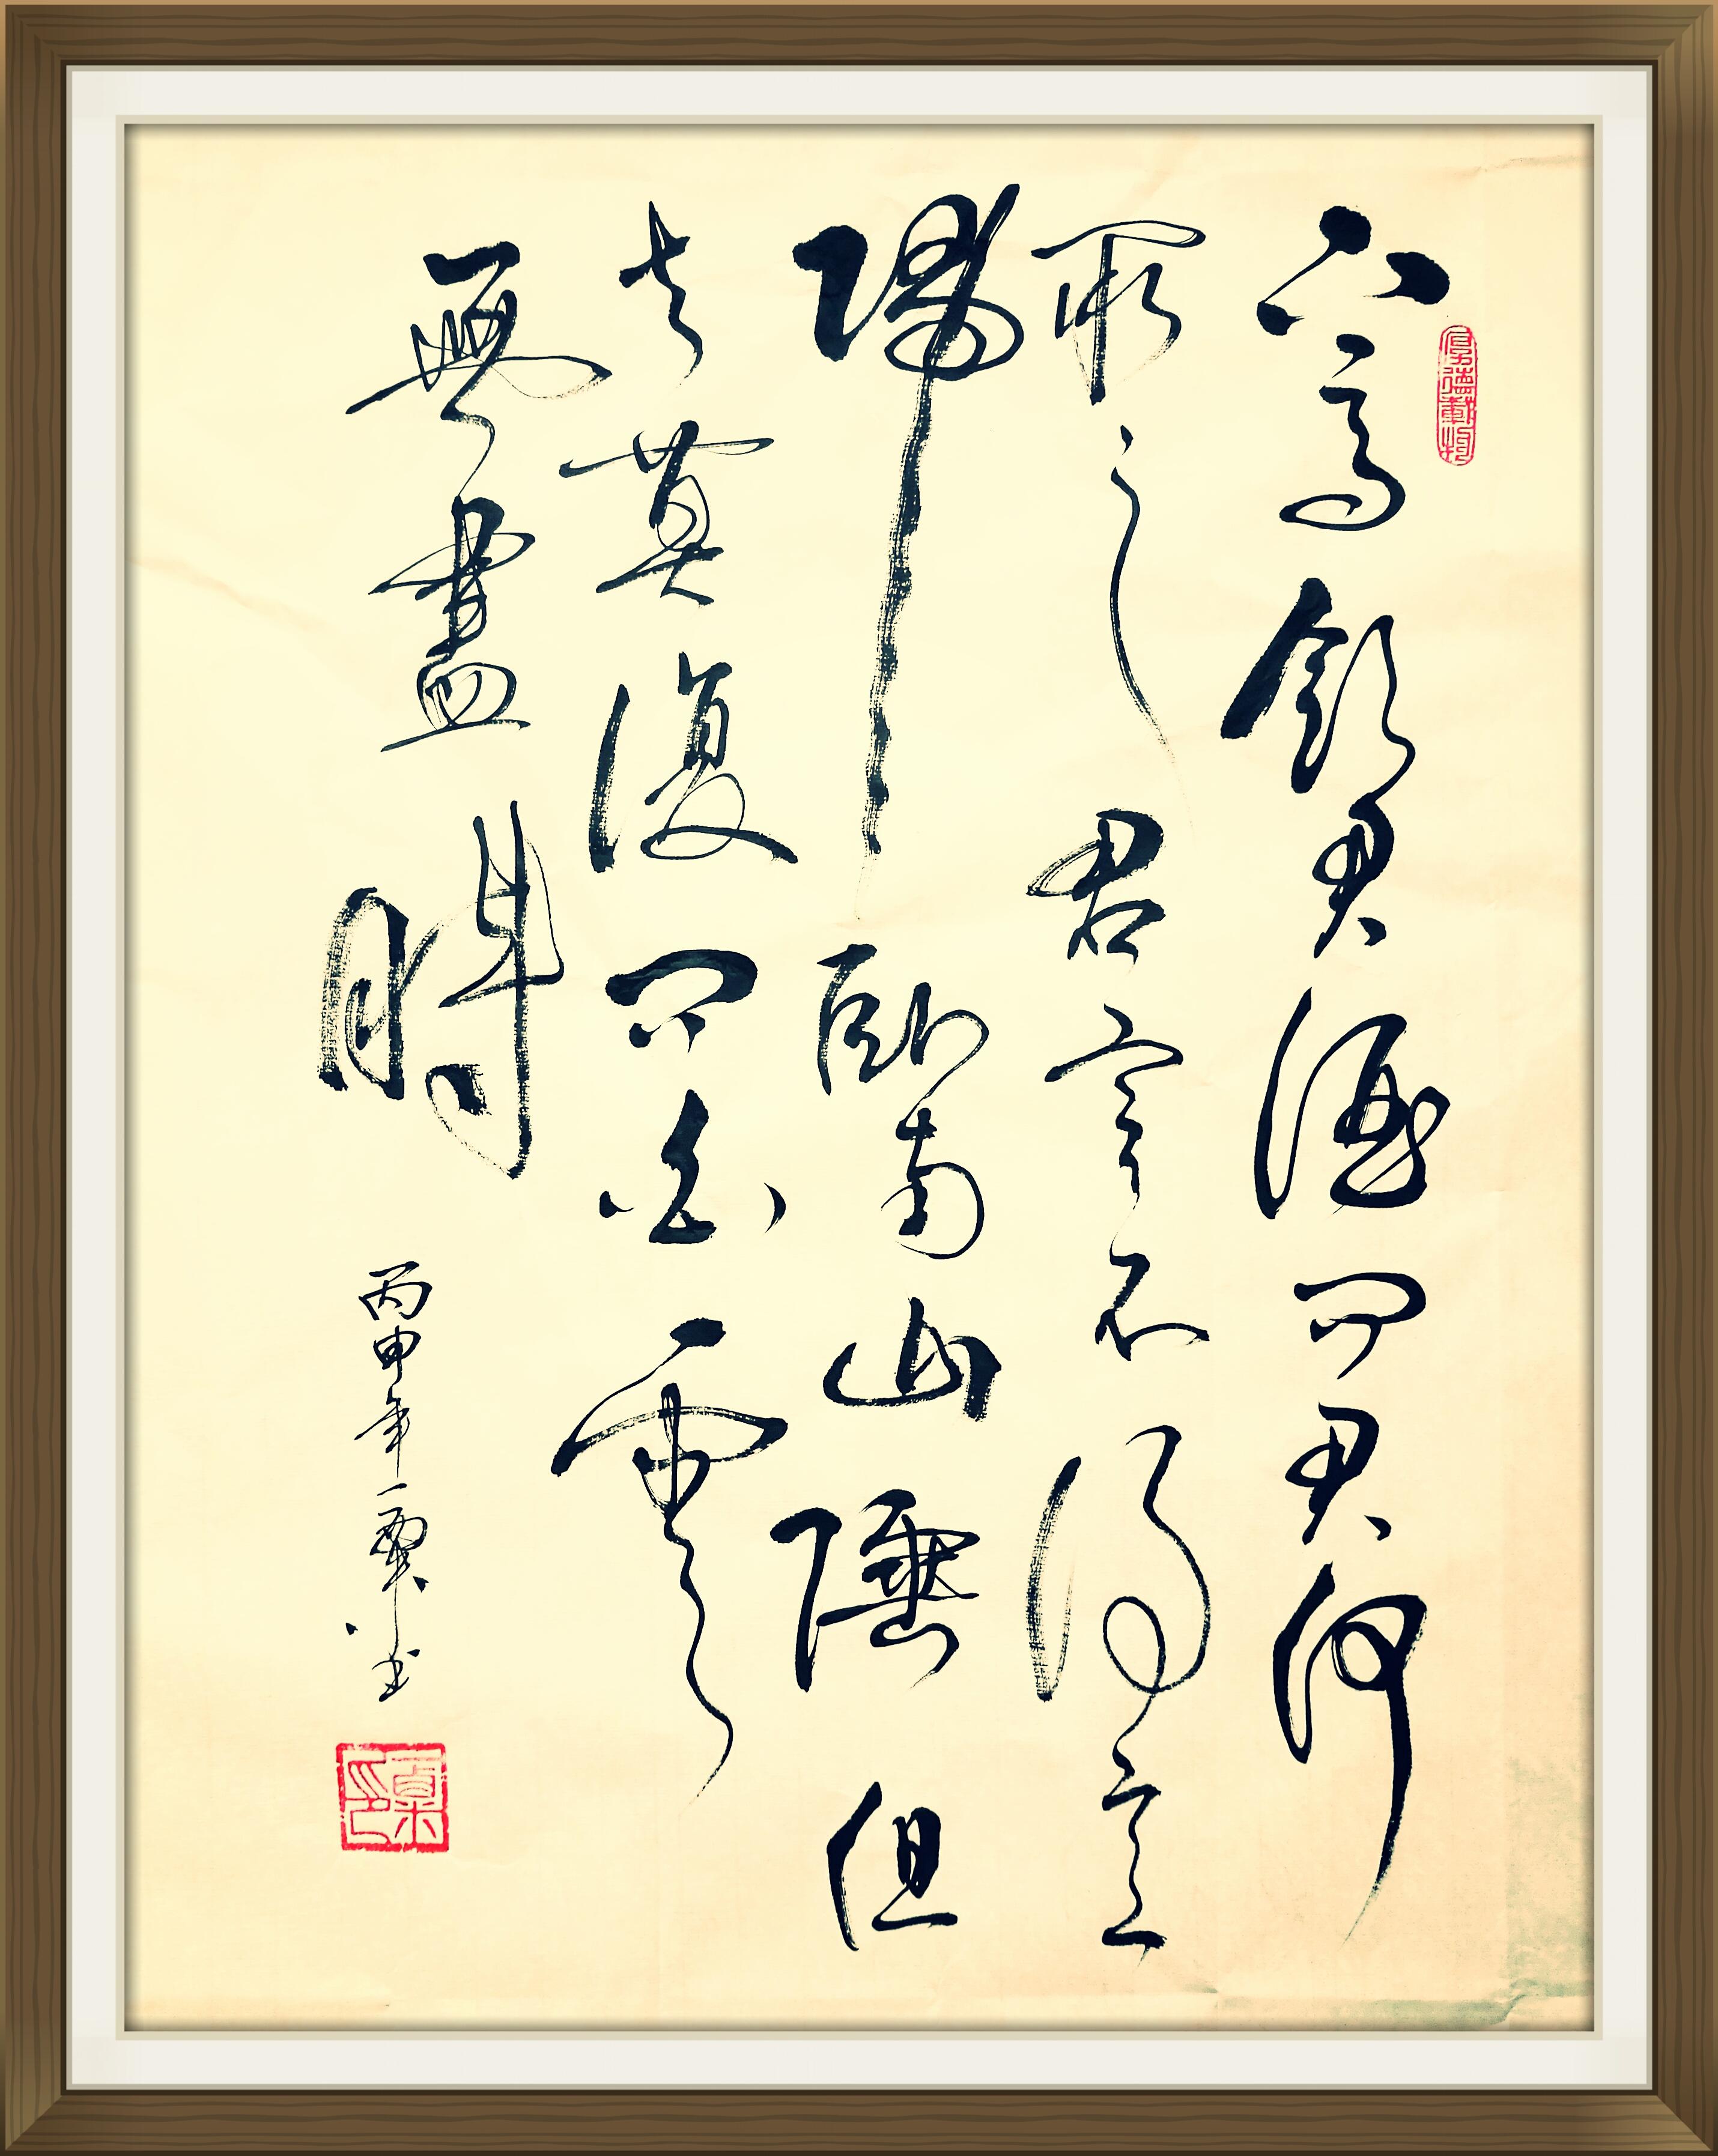 厚德載物
下馬飲君酒問君何
所之君言不得意
歸臥南山陲但
去莫復問白雲
無盡時
丙申年一
书